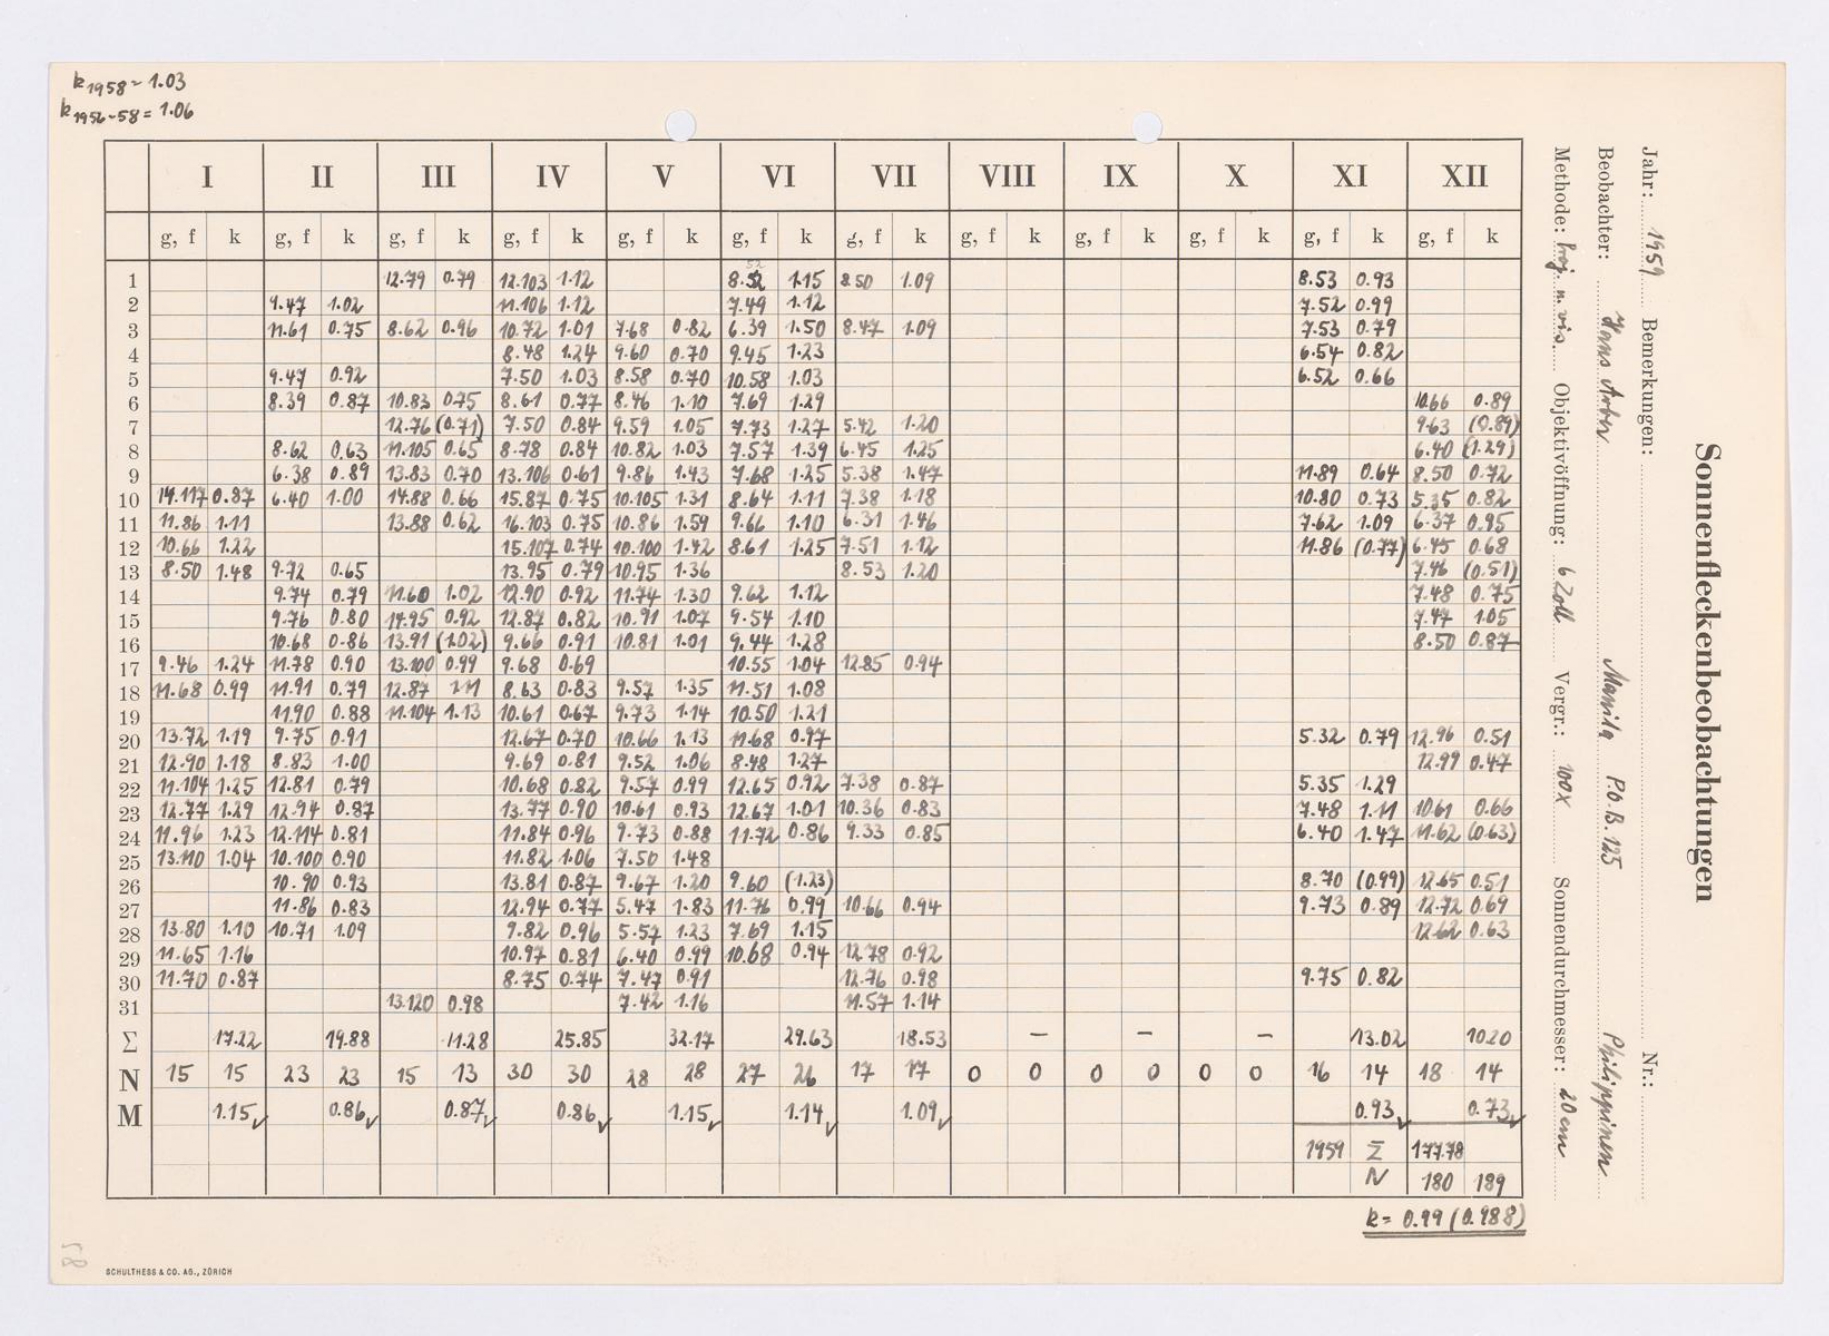 k1958 = 1.03
k1956-58 = 1.06
Sonnenfleckenbeobachtungen
Jahr: 1959 Bemerkungen: Nr.:
Beobachter: Hans Arber Manila P.O.B. 125 Philippinen
Methode: proj. u. vis. Objektivöffnung: 6 Zoll Vergr.: 100x Sonnendurchmesser: 20 cm
I II III IV V VI VII VIII IX X XI XII
g, f k g, f k g, f k g, f k g, f k g, f k g, f k g, f k g, f k g, f k g, f k g, f k
1 12.79 0.79 12.103 1.12 52 8.52 1.15 8.50 1.09 8.53 0.93
2 9.47 1.02 11.106 1.12 7.49 1.12 7.52 0.99
3 11.61 0.75 8.62 0.96 10.72 1.01 7.68 0.82 6.39 1.50 8.47 1.09 7.53 0.79
4 8.48 1.24 9.60 0.70 9.45 1.23 6.54 0.82
5 9.47 0.92 7.50 1.03 8.58 0.70 10.58 1.03 6.52 0.66
6 8.39 0.87 10.83 0.75 8.61 0.77 8.46 1.10 7.69 1.29 10.66 0.89
7 12.76 (0.71) 7.50 0.84 9.59 1.05 7.73 1.27 5.42 1.20 9.63 (0.89)
8 8.62 0.63 11.105 0.65 8.78 0.84 10.82 1.03 7.57 1.39 6.45 1.25 6.40 (1.29)
9 6.38 0.89 13.83 0.70 13.106 0.61 9.86 1.43 7.68 1.25 5.38 1.47 11.89 0.64 8.50 0.72
10 14.117 0.87 6.40 1.00 14.88 0.66 15.87 0.75 10.105 1.31 8.64 1.11 7.38 1.18 10.80 0.73 5.35 0.82
11 11.86 1.11 13.88 0.62 16.103 0.75 10.86 1.59 9.66 1.10 6.31 1.46 7.62 1.09 6.37 0.95
12 10.66 1.22 15.107 0.74 10.100 1.42 8.61 1.25 7.51 1.12 11.86 (0.77) 6.45 0.68
13 8.50 1.48 9.72 0.65 13.95 0.79 10.95 1.36 8.53 1.20 7.46 (0.51)
14 9.74 0.79 11.60 1.02 12.90 0.92 11.74 1.30 9.62 1.12 7.48 0.75
15 9.76 0.80 14.95 0.92 12.87 0.82 10.91 1.07 9.54 1.10 7.47 1.05
16 10.68 0.86 13.91 (1.02) 9.66 0.91 10.81 1.01 9.44 1.28 8.50 0.87
17 9.46 1.24 11.78 0.90 13.100 0.99 9.68 0.69 10.55 1.04 12.85 0.94
18 11.68 0.99 11.91 0.79 12.87 1.11 8.63 0.83 9.57 1.35 11.51 1.08
19 11.90 0.88 11.104 1.13 10.61 0.67 9.73 1.14 10.50 1.21
20 13.72 1.19 9.75 0.91 12.67 0.70 10.66 1.13 11.68 0.97 5.32 0.79 12.96 0.51
21 12.90 1.18 8.83 1.00 9.69 0.81 9.52 1.06 8.48 1.27 12.99 0.47
22 11.104 1.25 12.81 0.79 10.68 0.82 9.57 0.99 12.65 0.92 7.38 0.87 5.35 1.29
23 12.77 1.29 12.94 0.87 13.77 0.90 10.61 0.93 12.67 1.01 10.36 0.83 7.48 1.11 10.61 0.66
24 11.96 1.23 12.114 0.81 11.84 0.96 9.73 0.88 11.72 0.86 9.33 0.85 6.40 1.47 11.62 (0.63)
25 13.110 1.04 10.100 0.90 11.82 1.06 7.50 1.48
26 10.90 0.93 13.81 0.87 9.67 1.20 9.60 (1.23) 8.70 (0.99) 12.65 0.51
27 11.86 0.83 12.94 0.77 5.47 1.83 11.76 0.99 10.66 0.94 9.73 0.89 12.72 0.69
28 13.80 1.10 10.71 1.09 9.82 0.96 5.57 1.23 7.69 1.15 12.62 0.63
29 11.65 1.16 10.97 0.81 6.40 0.99 10.68 0.94 12.78 0.92
30 11.70 0.87 8.75 0.74 7.47 0.91 12.76 0.98 9.75 0.82
31 13.120 0.98 7.42 1.16 11.57 1.14
Σ 17.22 19.88 11.28 25.85 32.17 29.63 18.53 – – – 13.02 10.20
N 15 15 23 23 15 13 30 30 28 28 27 26 17 17 0 0 0 0 0 0 16 14 18 14
M 1.15✓ 0.86✓ 0.87✓ 0.86✓ 1.15✓ 1.14✓ 1.09✓ 0.93✓ 0.73✓
1959 Σ 177.78
N 180 189
k = 0.99 (0.988)
58
SCHULTHESS & CO. AG., ZÜRICH